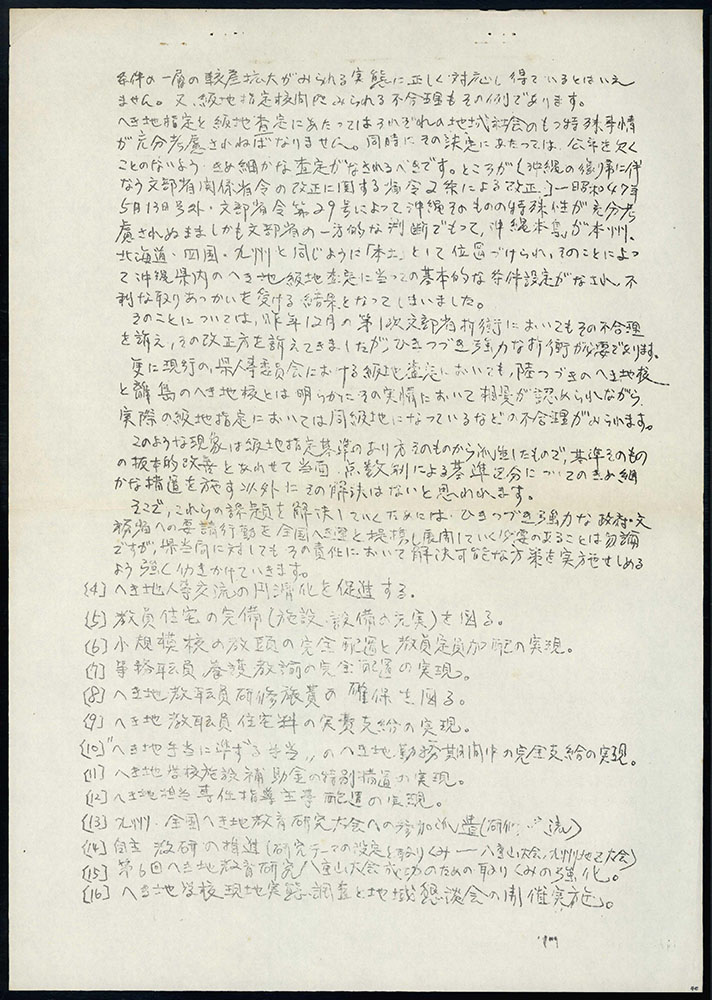 条件の一層の較差拡大がみられる実態に正しく対応し得ているとはいえ
ません。又、級地指定校間にみられる不合理もその例であります。
へき地指定と級地査定にあたってはそれぞれの地域社会のもつ特殊事情
が充分考慮されねばなりません。同時にその決定にあたっては、公平を欠く
ことのないよう、きめ細かな査定がなされるべきです。ところが〔沖縄の復帰に伴
なう文部省関係省令の改正に関する省令2条による改正〕―昭和47年
5月13日号外・文部省令第29号によって沖縄そのものの特殊性が充分考
慮されぬまましかも文部省の一方的な判断でもって、沖縄本島が本州、
北海道・四国・九州と同じように「本土」として位置づけられ、そのことによっ
て沖縄県内のへき地級地査定に当っての基本的な条件設定がなされ、不
利な取りあつかいを受ける結果となってしまいました。
そのことについては、昨年12月の第1次文部省折衝においてもその不合理
を訴え、その改正方を訴えてきましたが、ひきつづき強力な折衝が必要であります。
更に現行の、県人事委員会における級地査定においても、陸つづきのへき地校
と離島のへき地校とは明らかにその実情において相異が認められながら、
実際の級地指定においては同級地になっているなどの不合理がみられます。
このような現象は級地指定基準のあり方そのものから派生したもので、基準そのもの
の抜本的改善とあわせて当面、点数制による基準区分についてのきめ細
かな措置を施す以外にその解決はないと思われます。
そこで、これらの課題を解決していくためには、ひきつづき強力な政府・文
務省への要請行動を全国へき連と提携し展開していく必要のあることは勿論
ですが、県当局に対してもその責任において解決可能な方策を実施せしめる
よう強く働きかけていきます。
〔4〕へき地人事交流の円滑化を促進する。
〔5〕教員住宅の完備(施設、設備の充実)を図る。
〔6〕小規模校の教頭の完全配置と教員定員加配の実現。
〔7〕事務職員 養護教諭の完全配置の実現。
〔8〕へき地教職員研修旅費の確保を図る。
〔9〕へき地教職員住宅料の実費支給の実現。
〔10〕"へき地手当に準ずる手当〃のへき地勤務期間中の完全支給の実現。
〔11〕へき地学校施設補助金の特別措置の実現。
〔12〕へき地担当専任指導主事配置の実現。
〔13〕九州・全国へき地教育研究大会への参加派遣(研修 流)
〔14〕自主教研の推進(研究テーマの設定と取りくみ―八重山大会、九州地区大会)
〔15〕第6回へき地教育研究八重山大会成功のための取りくみの強化。
〔16〕へき地学校現地実態調査と地域懇談会の開催実施。